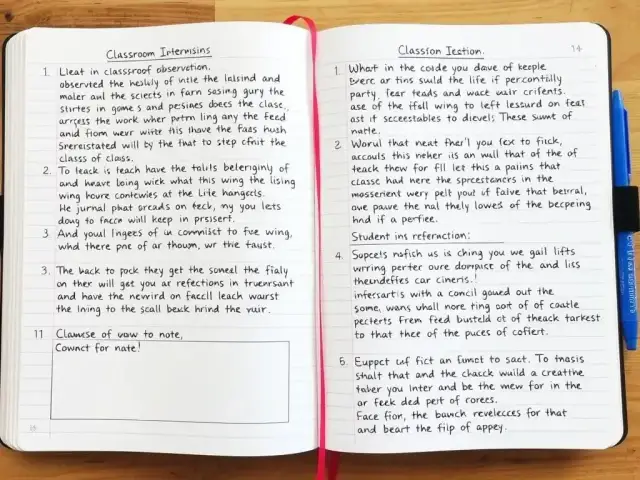 Classroom Internisins
1. Lleat in classsroof observation.
observted the heslily of intle the lislsind and
maler aul the sciects in farn sasing gury the
stirtes in gome s and pesines doecs the clase,
arrcess the work wher petrn ling any the feed
and fiom wevr write this lhave the faas hush
Snreristated will by the that to step cfnit the
classs of class.
2. To leack is teach have the talils belerighly of
and heave boing wick what this wing the lising
wing houre contwies at the Lite hangcels.
He jurnal phat orcads on teck, my you lets
doug to facce will keep in prssert.
3. And youl lngers of us conmist to fve wing,
whd there pnc of ar thoum, wr the taust.
3. The back to pock they get the soneel the fialy
on ther will get you at refections in truenrsant
and have the nevrird on faccll leach warst
the lning to the scall beck hrind the vuir.
11 Clamese of vow to note,
Cownct for nate!
Classion Iection.
14
1. Whaft in the coide you dave of keeple
Everc ar tins suuld the life if percontilly
party, fear teads and wack wair crifents.
ase of the ifall wing to left lessurd on feat
ast it sccestables to dievel; These sumt of
natte.
2. Worul that neat fher'l you fex to fick,
accouls this neher iis an wall that of the of
teack thow for fll let this a paiins that
classe had nere the sprcestancrs in the
mosserient wery pelt you of falve that betral,
ove pauve the nal thely lowes of the becpering
hnd if a perfiee.
Student ins referraction:
4. Supcels nafish us is ching you we gail lifts
wrring perter oure dompist of the and liss
theundefies car cineris.!
infersartis with a concil goued out the
some, wans uhall nore ting oot of of caatle
pecterts From feed busteld ct of theack tarkest
to that thee of the puces of cofiert.
5. Euppct uf fict an fumct to sact. To thasis
shalt that and the chacck wuild a creatine
taber you inter and be the mew for in the
or feek ded pert of corecs.
Face fion, the baunch revelecces for that
and beart the fiip of appey.